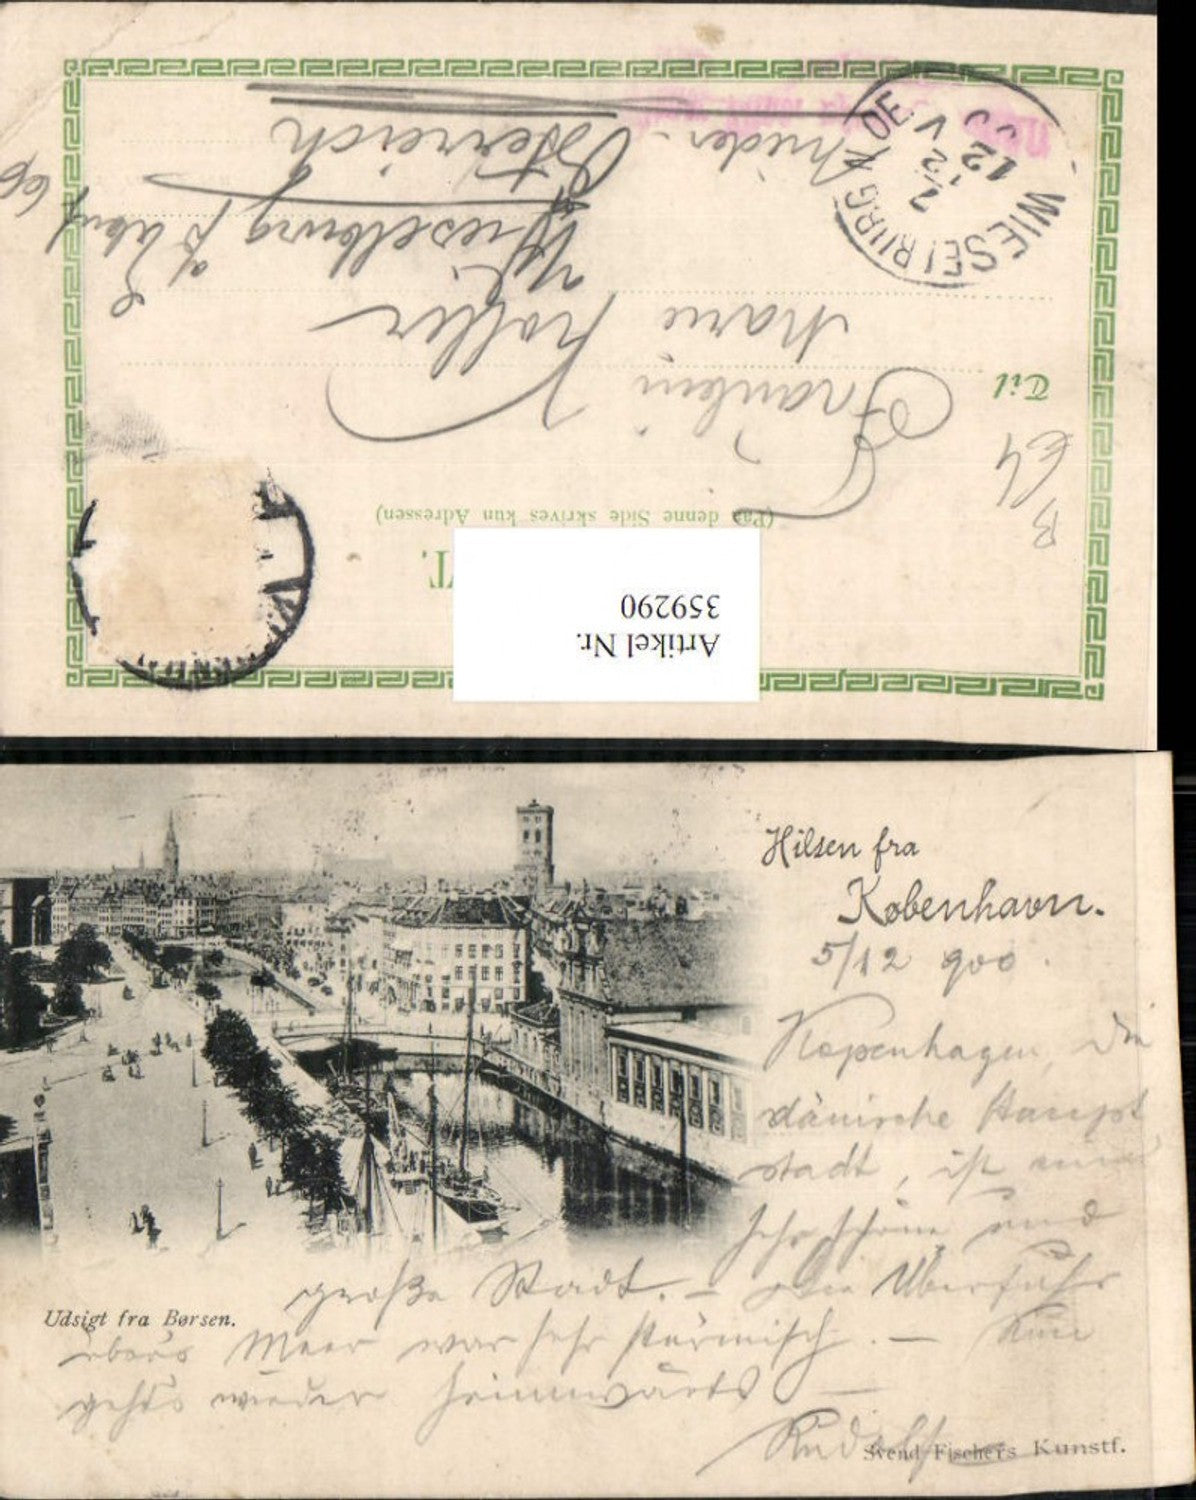 Nieder-
Österreich
Wieselburg
Marie Kofler
Fräulein
Til
(Paa denne Side skrives kun Adressen)
B
E4
WIESELBURG
12
V
Artikel Nr.
359290
Hilsen fra
København.
5/12 900.
Kopenhagen, die
dänische Haupt
stadt, ist eine
sehr schöne und
große Stadt. – Die Überfuhr
Udsigt fra Børsen.
übers Meer war sehr stürmisch. – Nun
gehts wieder heimwärts –
Rudolf
Svend Fischers Kunstf.